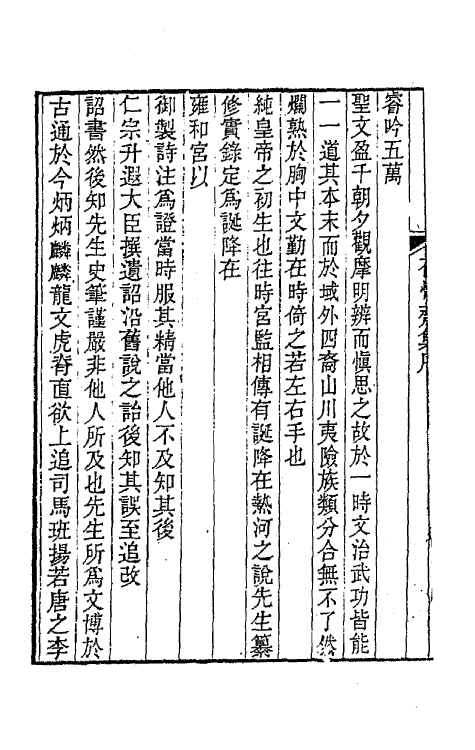 睿吟五萬
聖文盈千朝夕觀摩明辨而愼思之故於一時文治武功皆能
一一道其本末而於域外四裔山川夷險族類分合無不了然
爛熟於胸中文勤在時倚之若左右手也
純皇帝之初生也往時宮監相傳有誕降在熱河之說先生纂
修實錄定爲誕降在
雍和宮以
御製詩注爲證當時服其精當他人不及知其後
仁宗升遐大臣撰遺詔沿舊說之詒後知其誤至追改
詔書然後知先生史筆謹嚴非他人所及也先生所爲文博於
古通於今炳炳麟麟龍文虎脊直欲上追司馬班揚若唐之李